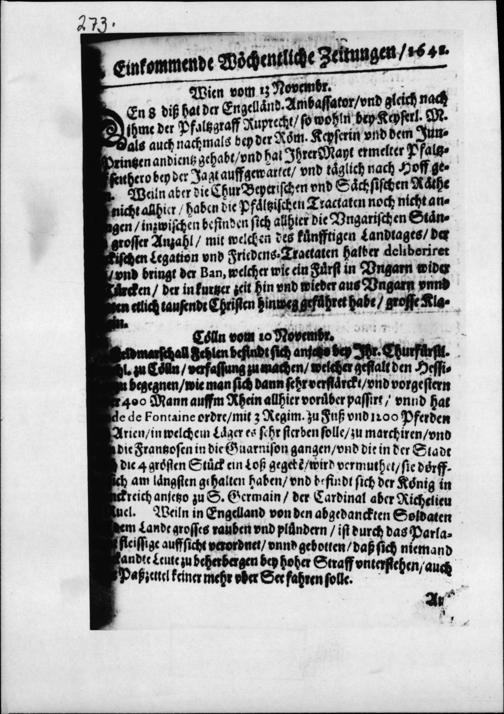 273.
Einkommende Wöchentliche Zeitungen/1641.
Wien vom 13 Novembr.
DEn 8 diß hat der Engelländ. Ambassator/vnd gleich nach
ihme der Pfaltzgraff Ruprecht/so wohln bey Keyserl. M.
als auch nachmals bey der Röm. Keyserin vnd dem Jun-
Printzen andientz gehabt/vnd hat Ihrer Mayt ermelter Pfaltz-
bey der Jagt auffgewartet/vnd täglich nach Hoff ge-
Weiln aber die Chur Beyerischen vnd Sächsischen Räthe
nicht allhier/haben die Pfältzischen Tractaten noch nicht an-
gen/inzwischen befinden sich allhier die Vngarischen Stän-
grosser Anzahl/mit welchen des künfftigen Landtages/der
kischen Legation vnd Friedens-Tractaten halber deliberiret
/vnd bringt der Ban, welcher wie ein Fürst in Vngarn wider
Türcken/der in kurtzer zeit hin vnd wieder aus Vngarn vnnd
etlich tausendt Christen hinweg geführet habe/grosse Kla-
Cölln vom 10 Novembr.
Feldmarschall Fehlen befindt sich anjetzo bey Ihr. Churfürstl.
zu Cölln/verfassung zu machen/welcher gestalt den Hessi-
zu begegnen/wie man sich dann sehr verstärckt/vnd vorgestern
400 Mann auffm Rhein allhier vorüber passirt/vnnd hat
de de Fontaine ordre/mit 3 Regim. zu Fuß vnd 1200 Pferden
Arien/in welchem Läger es sehr sterben solle/zu marchiren/vnd
die Frantzosen in die Guarnison gangen/vnd die in der Stadt
die 4 grösten Stück ein Loß gegebē/wird vermuthet/sie dörff-
sich am längsten gehalten haben/vnd befindt sich der König in
nckreich anjetzo zu S. Germain/der Cardinal aber Richelieu
Ruel. Weiln in Engelland von den abgedanckten Soldaten
dem Lande grosses rauben vnd plündern/ist durch das Parla-
fleissige auffsicht verordnet/vnnd gebotten/daß sich niemand
Leute zu beherbergen bey hoher Straff vnterstehen/auch
Paßzettel keiner mehr vber See fahren solle.